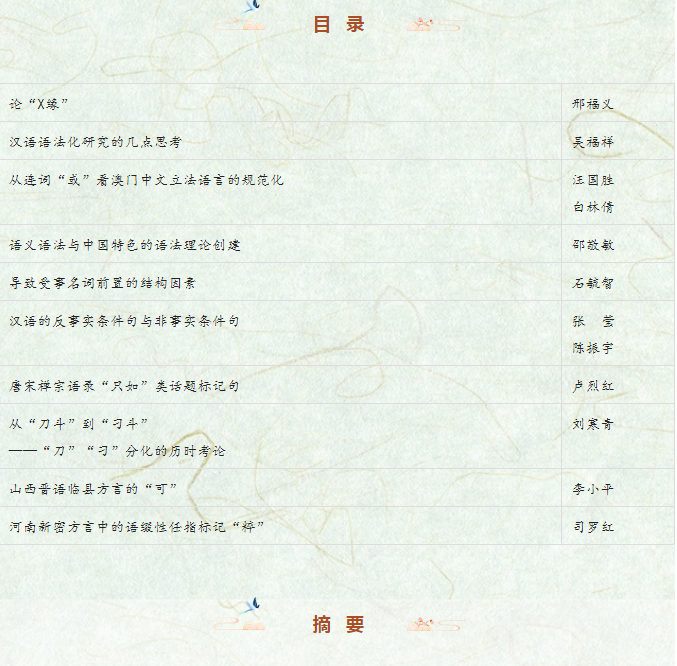 目 录
论“X缘” 邢福义
汉语语法化研究的几点思考 吴福祥
从连词“或”看澳门中文立法语言的规范化 汪国胜
白林倩
语义语法与中国特色的语法理论创建 邵敬敏
导致受事名词前置的结构因素 石毓智
汉语的反事实条件句与非事实条件句 张 莹
陈振宇
唐宋禅宗语录“只如”类话题标记句 卢烈红
从“刀斗”到“刁斗” 刘寒青
——“刀”“刁”分化的历时考论
山西晋语临县方言的“可” 李小平
河南新密方言中的语缀性任指标记“粹” 司罗红
摘 要